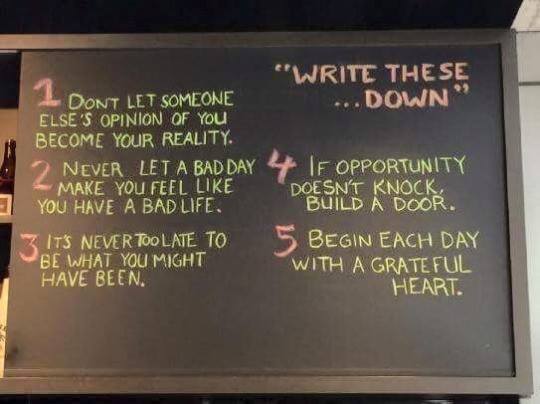 "WRITE THESE
...DOWN"
1 DONT LET SOMEONE
ELSE'S OPINION OF YOU
BECOME YOUR REALITY.
2 NEVER LET A BAD DAY
MAKE YOU FEEL LIKE
YOU HAVE A BAD LIFE.
3 ITS NEVER TOO LATE TO
BE WHAT YOU MIGHT
HAVE BEEN.
4 IF OPPORTUNITY
DOESN'T KNOCK,
BUILD A DOOR.
5 BEGIN EACH DAY
WITH A GRATEFUL
HEART.